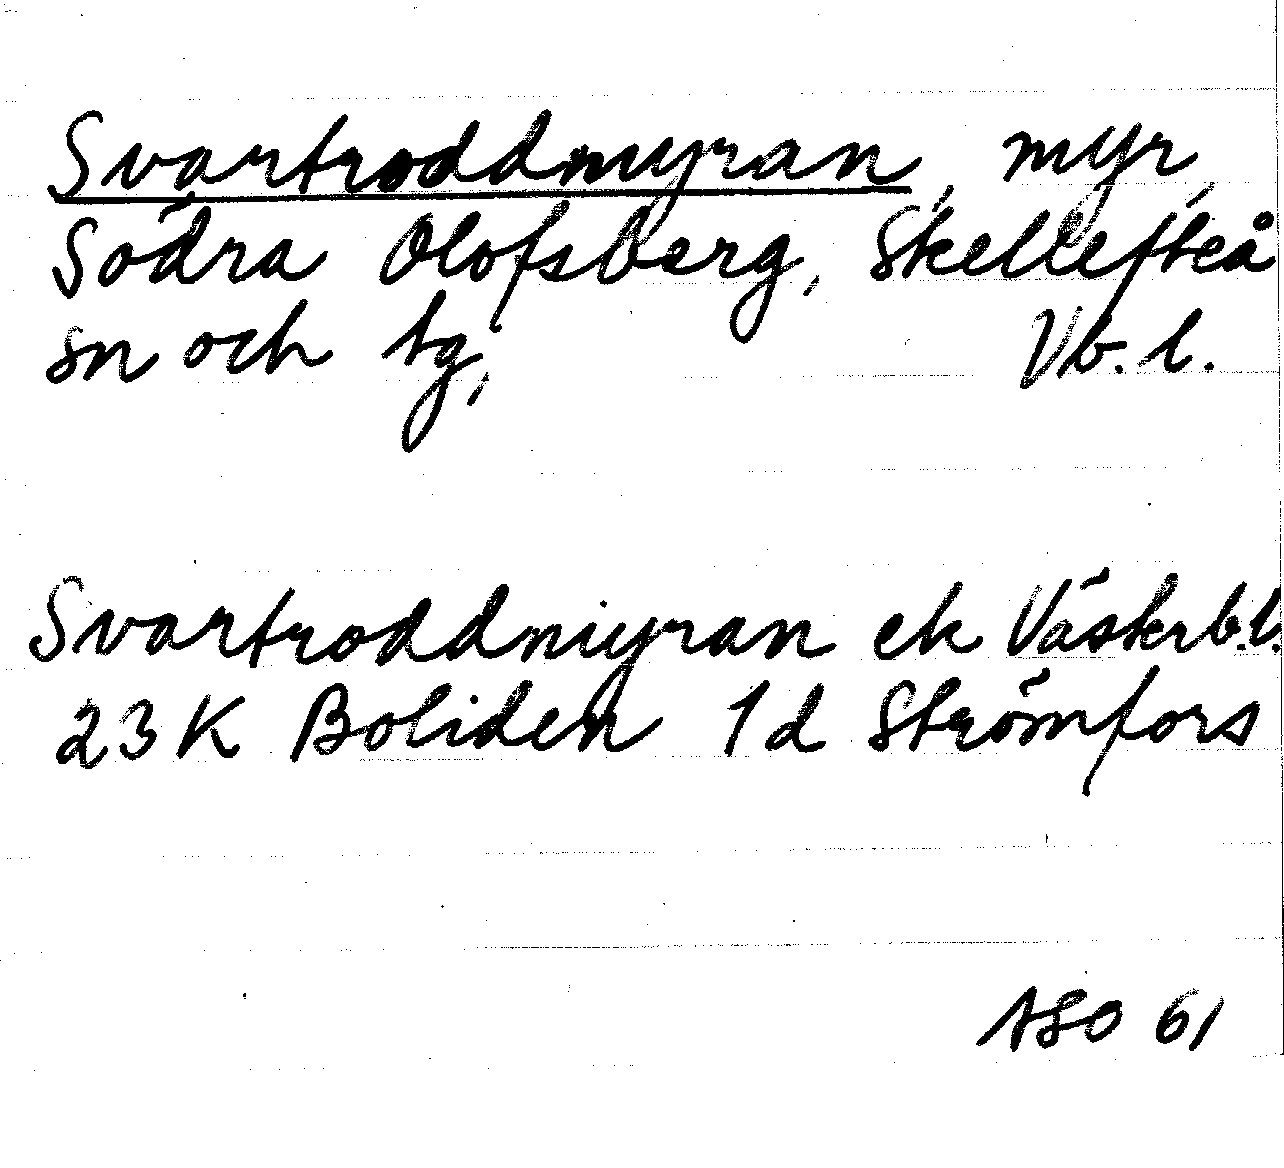 Svartroddmyran, myr,
Södra Olofsberg, Skellefteå
sn och tg, Vb. l.
Svartroddmyran ek Västerb.l.
23 K Boliden 1d Strömfors
ASO 61